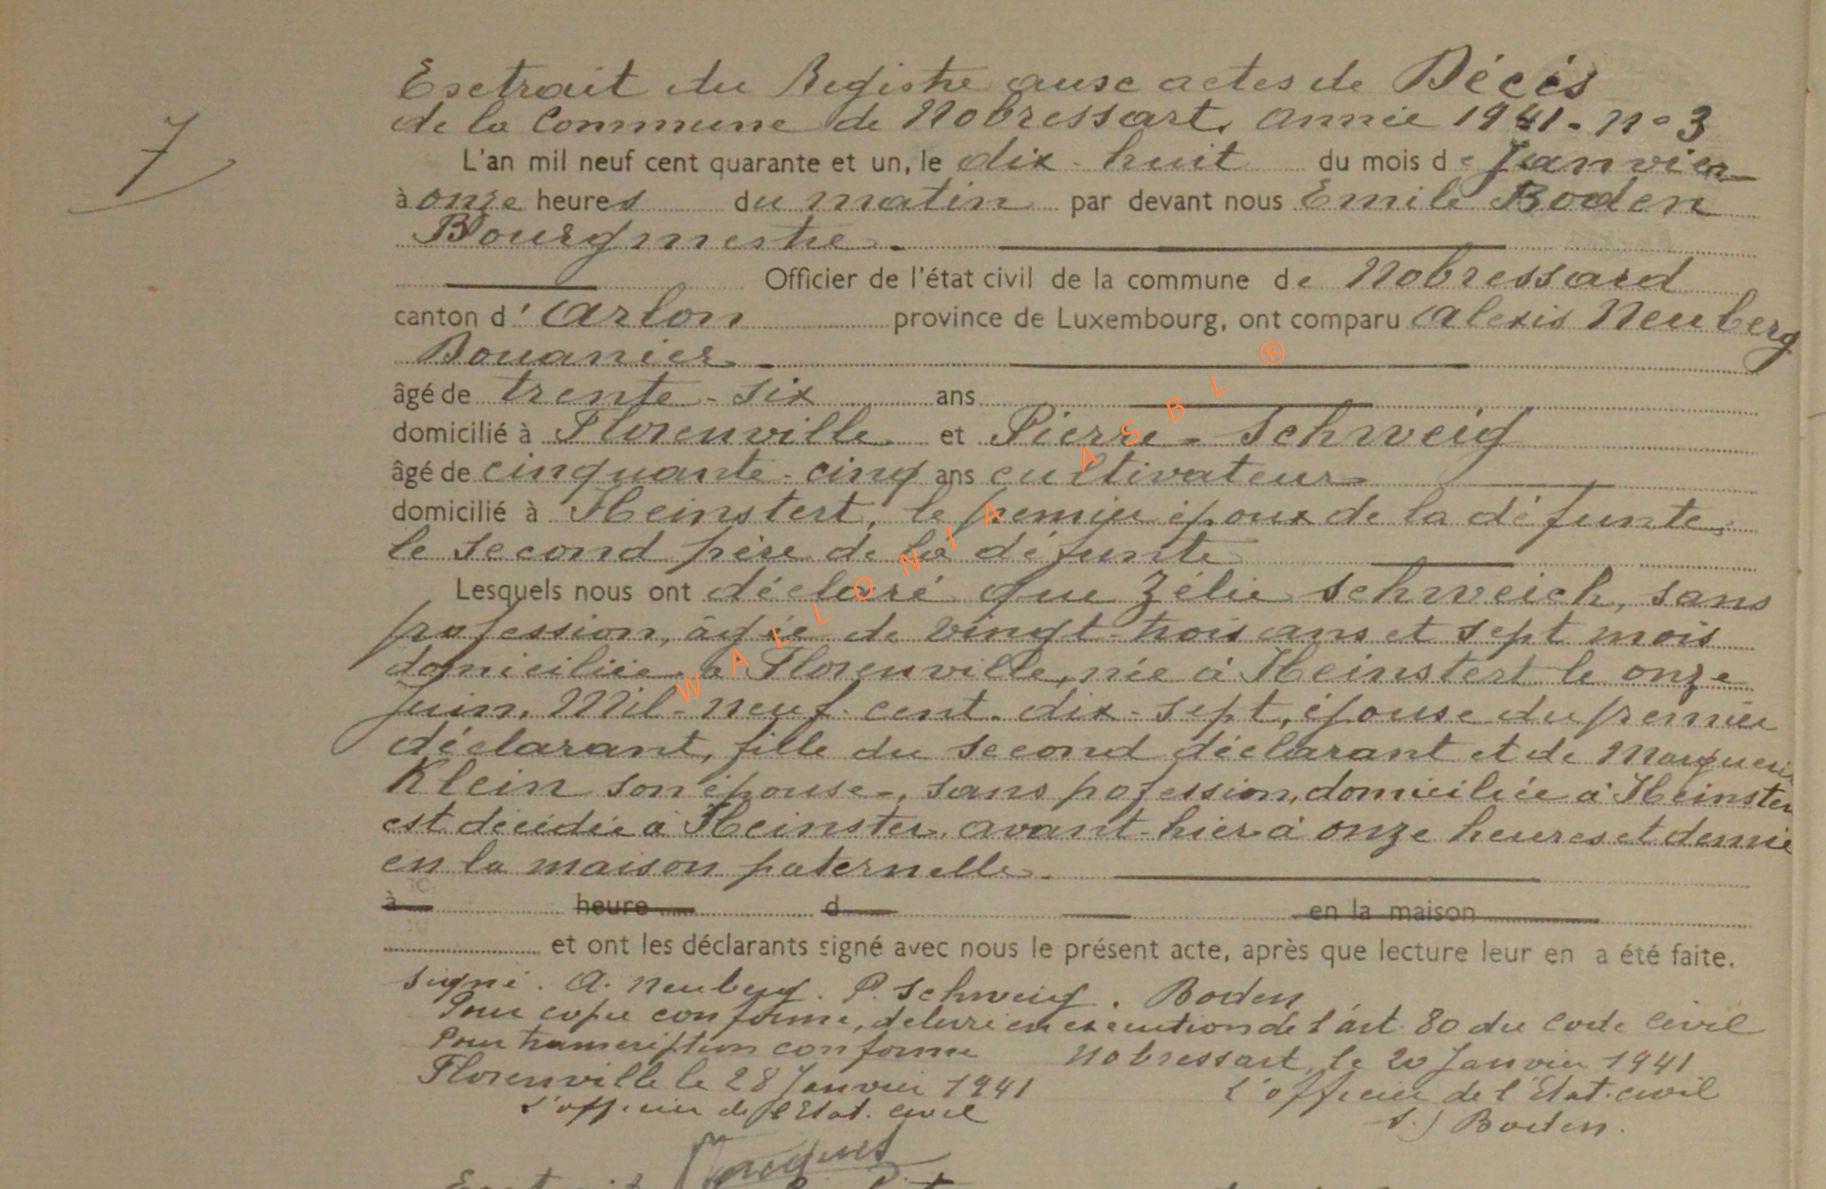 7
Extrait du Registre aux actes de Décès
de la Commune de Nobressart. Année 1941 - n° 3
L'an mil neuf cent quarante et un, le dix-huit du mois de Janvier
à onze heures du matin par devant nous Emile Boden
Bourgmestre.
Officier de l'état civil de la commune de Nobressard
canton d'Arlon province de Luxembourg, ont comparu Alexis Neuberg
Douanier
âgé de trente-six ans
domicilié à Florenville et Pierre Schweig
âgé de cinquante-cinq ans cultivateur
domicilié à Heinstert, le premier époux de la défunte,
le second père de la défunte
Lesquels nous ont déclaré que Zélie Schweich, sans
profession, âgée de vingt-trois ans et sept mois
domiciliée à Florenville, née à Heinstert le onze
Juin, Mil-neuf-cent-dix-sept, épouse du premier
déclarant, fille du second déclarant et de Marguerite
Klein son épouse, sans pofession, domiciliée à Heinster
est décédée à Heinster, avant-hier à onze heures et demie
en la maison paternelle.
à heure d en la maison
et ont les déclarants signé avec nous le présent acte, après que lecture leur en a été faite.
signé. A. Neuberg. P. Schweig. Boden
Pour copie conforme, délivré en exécution de l'art. 80 du Code Civil
Pour transcription conforme Nobressart, le 20 Janvier 1941
Florenville le 28 Janvier 1941 L'officier de l'Etat-civil
L'officier de l'Etat. civil s.) Boden.
Jacques
Extrait
WALLONIA ASBL ®